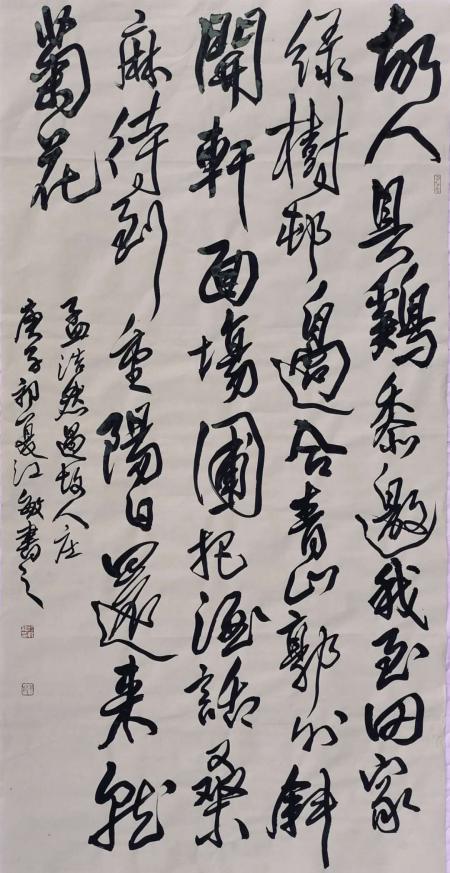 故人具鷄黍邀我至田家
绿樹邨邊合青山郭外斜
開軒面場圃把酒話桑
麻待到重陽日還来就
菊花
孟浩然過故人庄
庚子初夏江敏書之